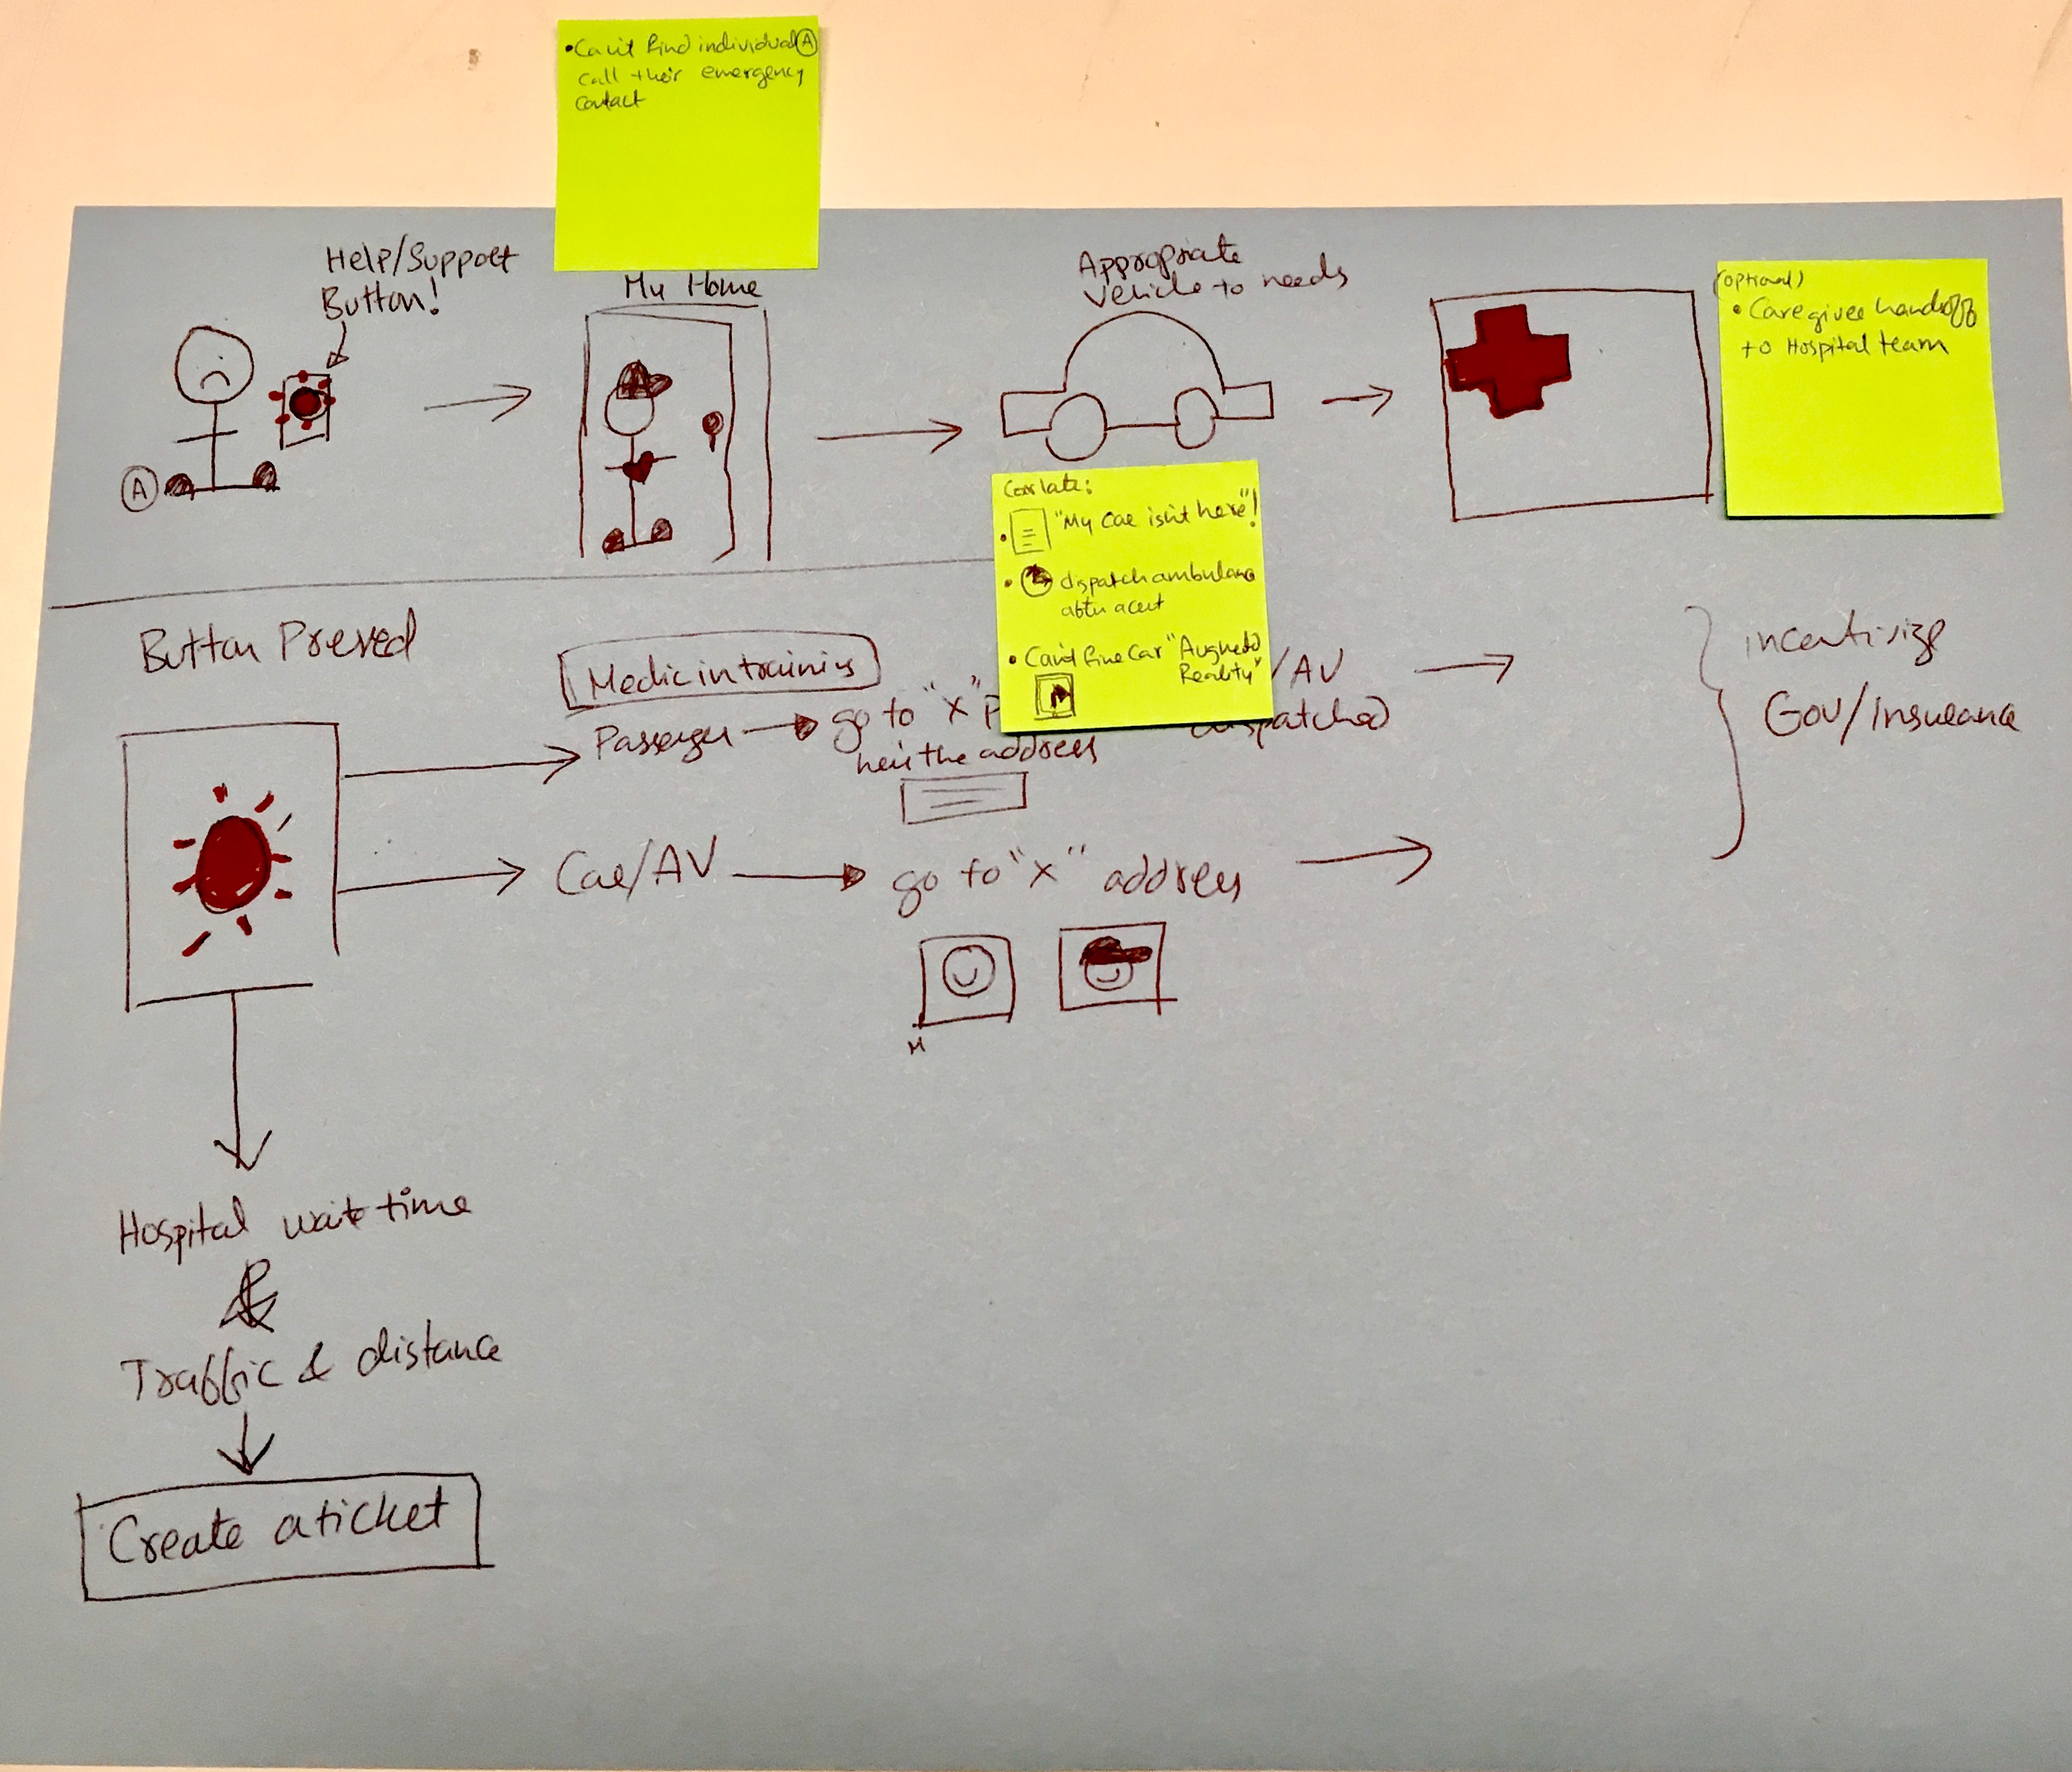 • Can't find individual Ⓐ
call their emergency
contact
Help/Support
Button!
My Home
Appropriate
vehicle to needs
(optional)
• Caregiver handoff
to Hospital team
A
Car late:
• "My Car isn't here"!
• dispatch ambulance
• Can't fine Car "Augmented
Reality"
Button Pressed
Medic in training
Passenger go to "X" P
/AV
dispatched
the address
Car/AV go to "X" address
incentivize
Gov/Insurance
M
Hospital wait time
&
Traffic & distance
Create a ticket